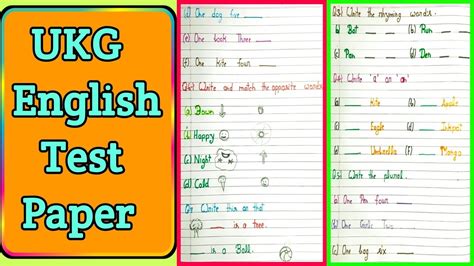 UKG
English
Test
Paper
(d) One dog five ___
(e) One book Three ___
(f) One kite four ___
Write and match the opposite words
(a) Down
(b) Happy
(c) Night
(d) Cold
Write this or that
___ is a tree.
___ is a Ball.
Q3) Write the rhyming words.
(a) Bat ___ ___ (b) Run ___ ___
(c) Pen ___ ___ (d) Den ___ ___
Write 'a' or 'an'
(a) ___ Kite (b) ___ Apple
(c) ___ Eagle (d) ___ Inkpot
(e) ___ Umbrella (f) ___ Mango
Q5) Write the plural.
(a) One Pen four ___
(b) One Girl Two ___
(c) One bag six ___